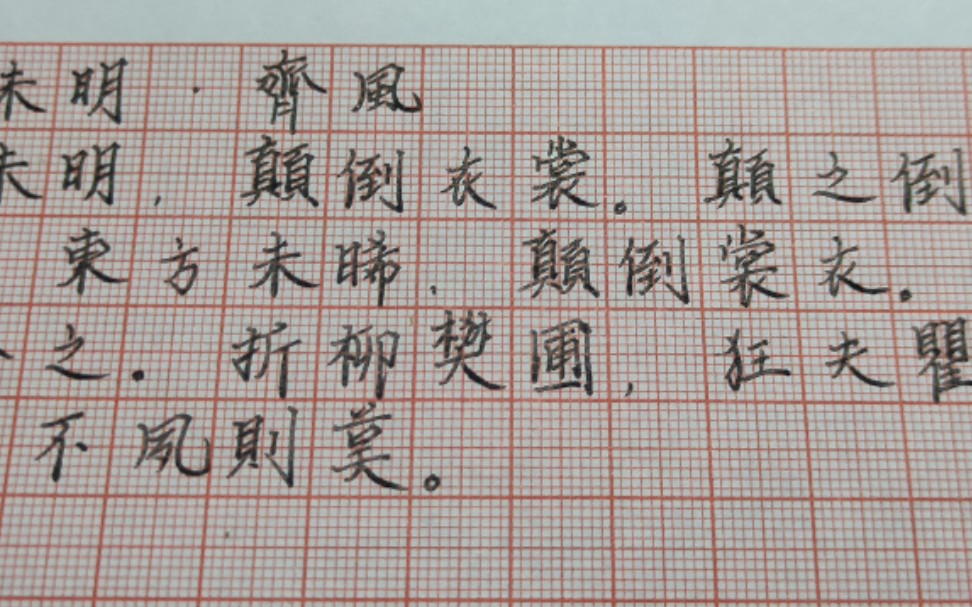 未明·齊風
未明，顛倒衣裳。顛之倒
東方未晞，顛倒裳衣。
之。折柳樊圃，狂夫瞿
不夙則莫。